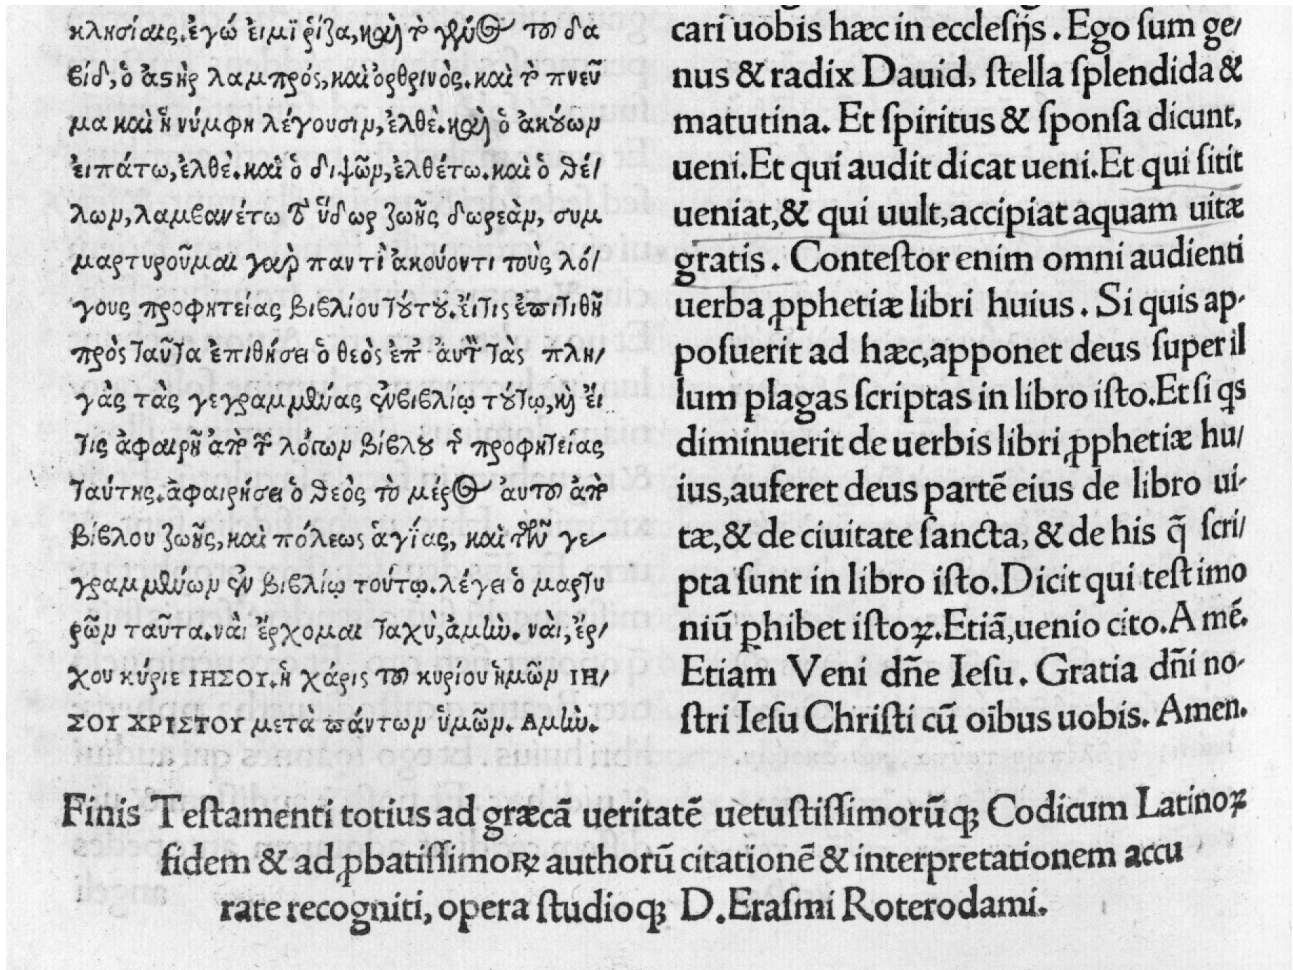 κλησίαις. ἐγώ εἰμι ἡ ῥίζα, καὶ τὸ γένος τοῦ δα
βίδ, ὁ ἀστὴρ λαμπρὸς, καὶ ὀρθρινός. καὶ τὸ πνεῦ
μα καὶ ἡ νύμφη λέγουσιν, ἐλθε. καὶ ὁ ἀκούων
εἰπάτω, ἐλθέ. καὶ ὁ διψῶν, ἐλθέτω. καὶ ὁ θέ/
λων, λαμβανέτω τὸ ὕδωρ ζωῆς δωρεὰν, συμ
μαρτυροῦμαι γὰρ παντὶ ἀκούοντι τοὺς λό/
γους προφητείας βιβλίου τούτου. εἴτις ἐπιτιθῆ
πρὸς ταῦτα ἐπιθήσει ὁ θεός ἐπ' αυτὸν τὰς πλη/
γὰς τὰς γεγραμμένας ἐν βιβλίῳ τούτῳ, καὶ εἴ
τις ἀφαιρῇ ἀπὸ τῶν λόγων βίβλου τῆς προφητείας
ταύτης. ἀφαιρήσει ὁ θεὸς τὸ μέρος αὐτοῦ ἀπὸ
βίβλου ζωῆς, καὶ πόλεως ἁγίας, καὶ τῶν γε
γραμμένων ἐν βιβλίῳ τούτῳ. λέγει ὁ μαρτυ
ρῶν ταῦτα. ναὶ ἔρχομαι ταχυ, ἀμὴν. ναὶ, ἔρ/
χου κύριε ΙΗΣΟΥ. ἡ χάρις τοῦ κυρίου ἡμῶν ΙΗ/
ΣΟΥ ΧΡΙΣΤΟΥ μετα πάντων ὑμῶν. Αμὴν.
cari uobis hæc in ecclesijs. Ego sum ge/
nus & radix Dauid, stella splendida &
matutina. Et spiritus & sponsa dicunt,
ueni. Et qui audit dicat ueni. Et qui sitit
ueniat, & qui uult, accipiat aquam uitæ
gratis. Contestor enim omni audienti
uerba ꝓphetiæ libri huius. Si quis ap-
posuerit ad hæc, apponet deus super il
lum plagas scriptas in libro isto. Et si qs
diminuerit de uerbis libri ꝓphetiæ hu/
ius, auferet deus partẽ eius de libro ui-
tæ, & de ciuitate sancta, & de his q̃ scri/
pta sunt in libro isto. Dicit qui testimo
niũ ꝑhibet istoꝝ. Etiã, uenio cito. Amẽ.
Etiam Veni dñe Iesu. Gratia dñi no-
stri Iesu Christi cũ oibus uobis. Amen.
Finis Testamenti totius ad græcã ueritatẽ uetustissimorũq; Codicum Latinoꝝ
fidem & ad ꝓbatissimoꝝ authorũ citationẽ & interpretationem accu
rate recogniti, opera studioq; D. Erasmi Roterodami.